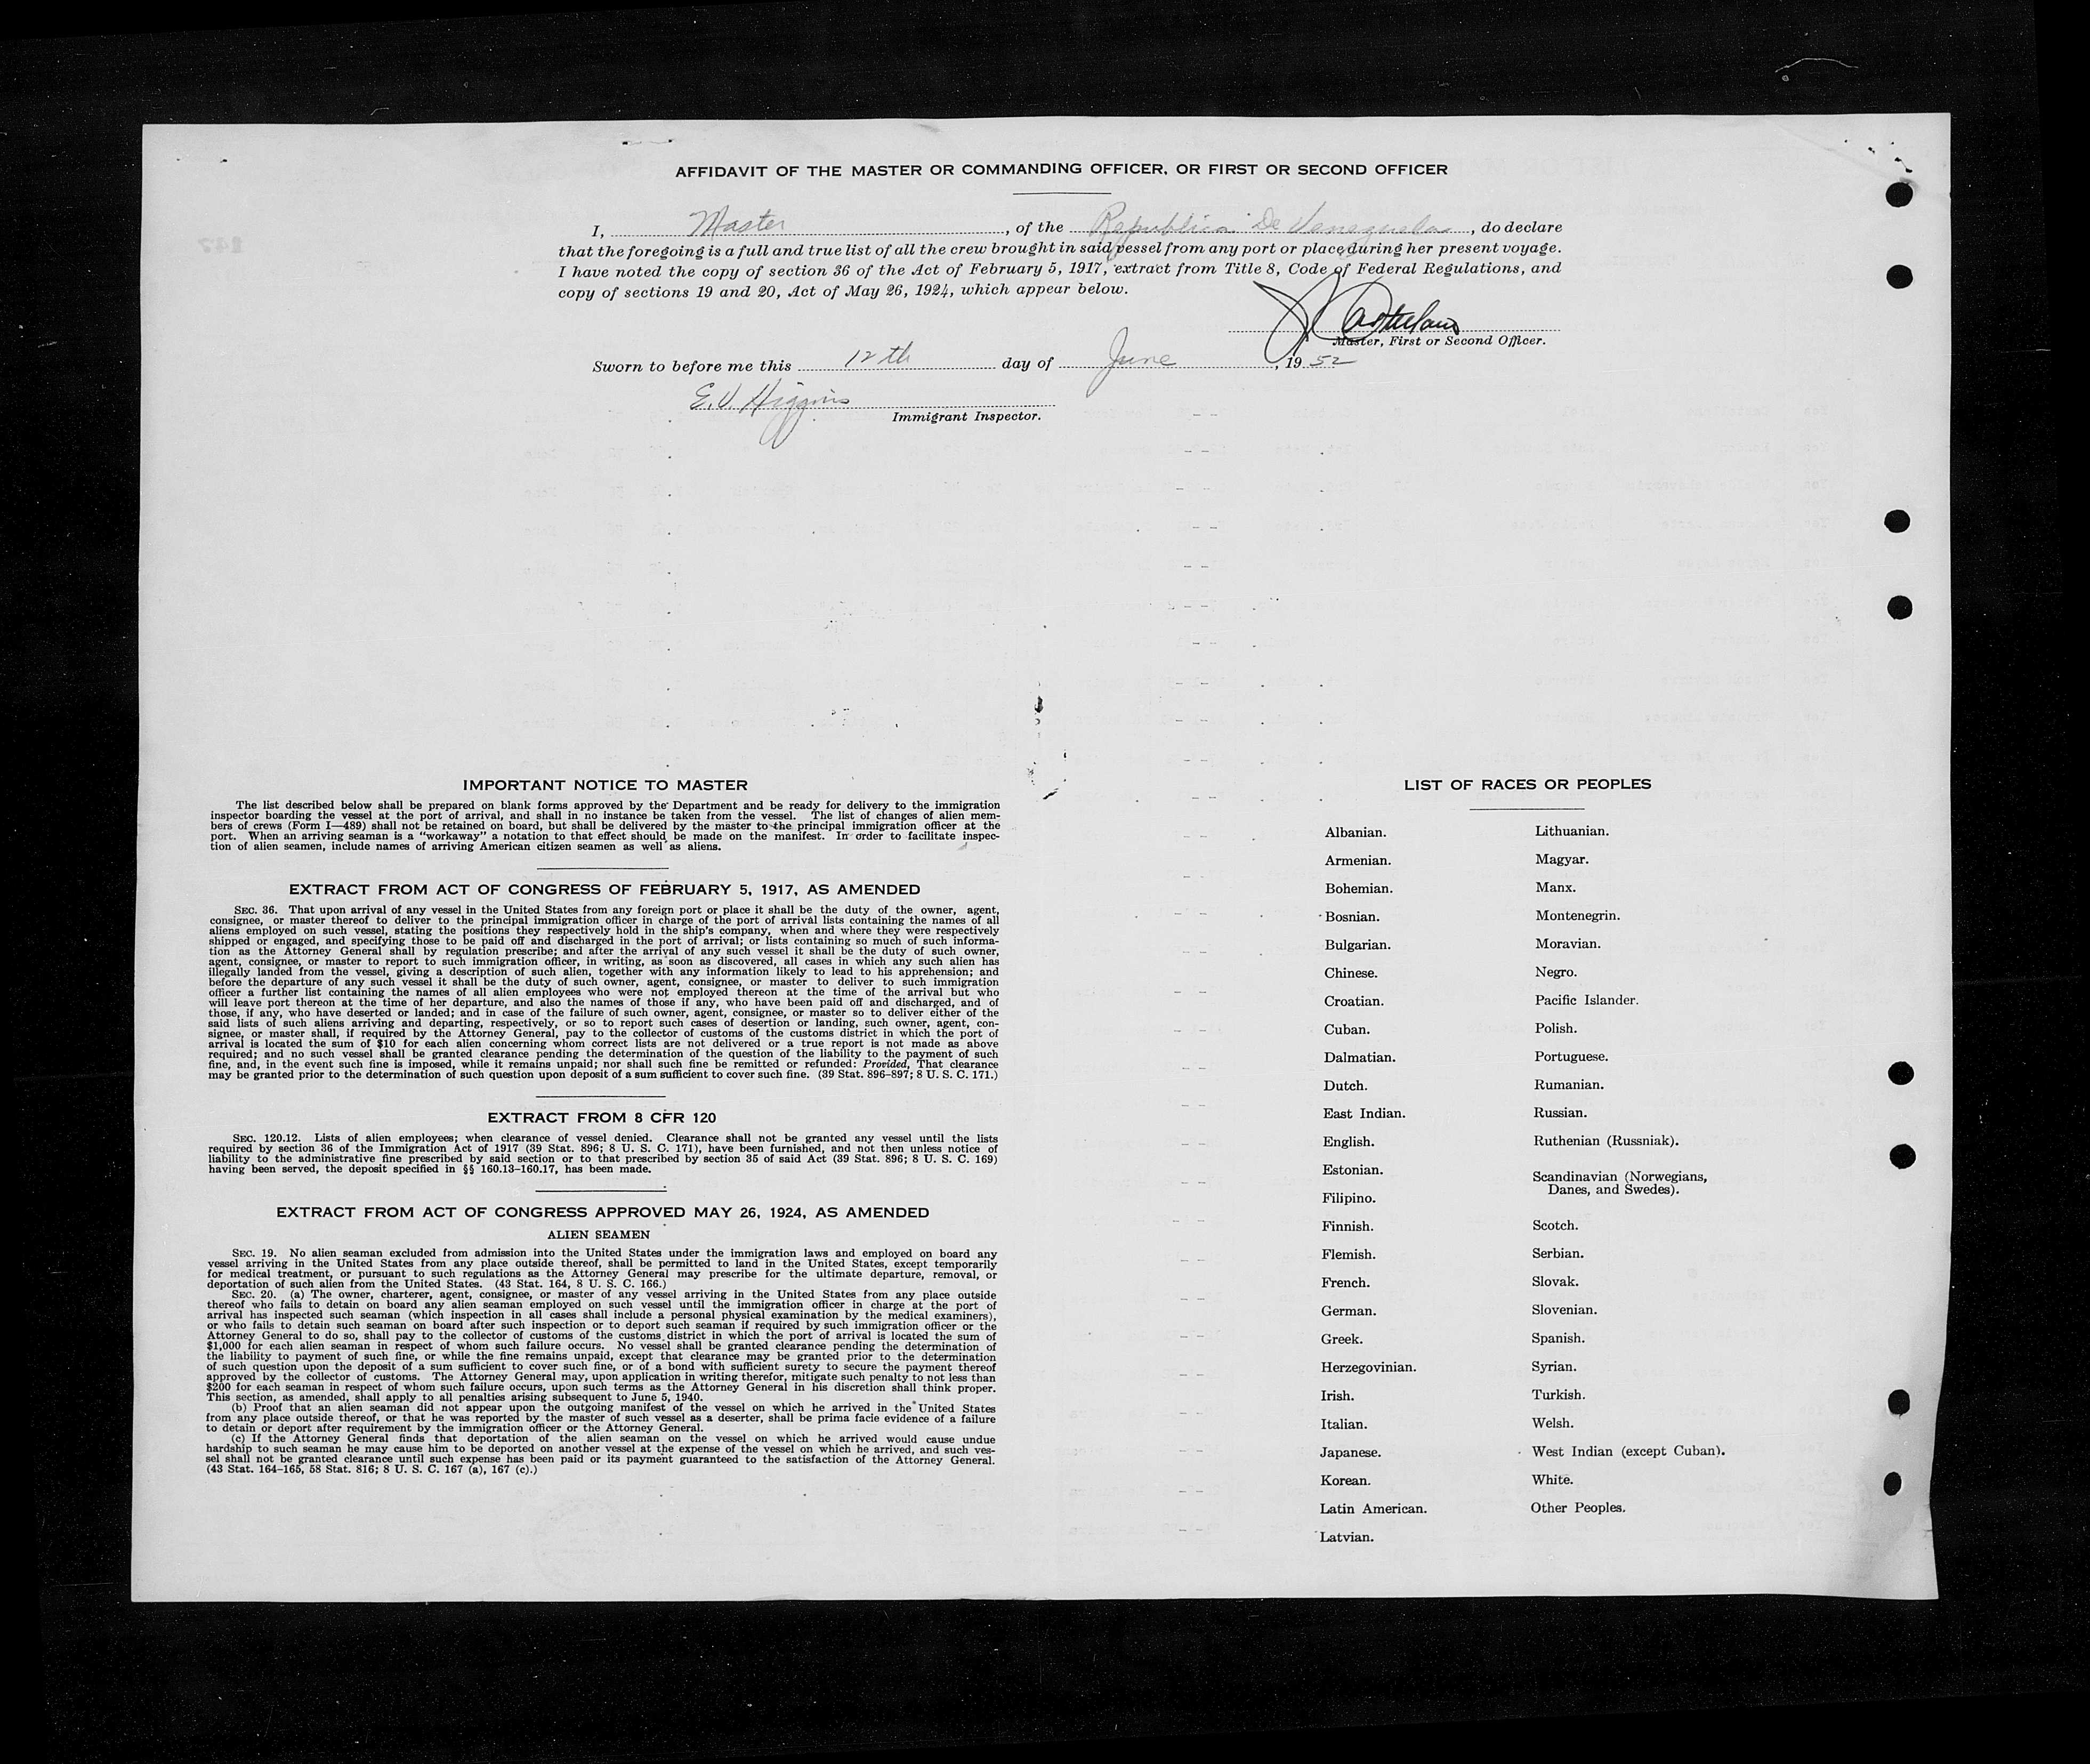 AFFIDAVIT OF THE MASTER OR COMMANDING OFFICER, OR FIRST OR SECOND OFFICER
I, Master, of the Republica De Venezuela, do declare
that the foregoing is a full and true list of all the crew brought in said vessel from any port or place during her present voyage.
I have noted the copy of section 36 of the Act of February 5, 1917, extract from Title 8, Code of Federal Regulations, and
copy of sections 19 and 20, Act of May 26, 1924, which appear below.
Master, First or Second Officer.
Sworn to before me this 12th day of June, 1952
E. V. Higgins
Immigrant Inspector.
IMPORTANT NOTICE TO MASTER
The list described below shall be prepared on blank forms approved by the Department and be ready for delivery to the immigration
inspector boarding the vessel at the port of arrival, and shall in no instance be taken from the vessel. The list of changes of alien mem-
bers of crews (Form I—489) shall not be retained on board, but shall be delivered by the master to the principal immigration officer at the
port. When an arriving seaman is a "workaway" a notation to that effect should be made on the manifest. In order to facilitate inspec-
tion of alien seamen, include names of arriving American citizen seamen as well as aliens.
EXTRACT FROM ACT OF CONGRESS OF FEBRUARY 5, 1917, AS AMENDED
SEC. 36. That upon arrival of any vessel in the United States from any foreign port or place it shall be the duty of the owner, agent,
consignee, or master thereof to deliver to the principal immigration officer in charge of the port of arrival lists containing the names of all
aliens employed on such vessel, stating the positions they respectively hold in the ship's company, when and where they were respectively
shipped or engaged, and specifying those to be paid off and discharged in the port of arrival; or lists containing so much of such informa-
tion as the Attorney General shall by regulation prescribe; and after the arrival of any such vessel it shall be the duty of such owner,
agent, consignee, or master to report to such immigration officer, in writing, as soon as discovered, all cases in which any such alien has
illegally landed from the vessel, giving a description of such alien, together with any information likely to lead to his apprehension; and
before the departure of any such vessel it shall be the duty of such owner, agent, consignee, or master to deliver to such immigration
officer a further list containing the names of all alien employees who were not employed thereon at the time of the arrival but who
will leave port thereon at the time of her departure, and also the names of those if any, who have been paid off and discharged, and of
those, if any, who have deserted or landed; and in case of the failure of such owner, agent, consignee, or master so to deliver either of the
said lists of such aliens arriving and departing, respectively, or so to report such cases of desertion or landing, such owner, agent, con-
signee, or master shall, if required by the Attorney General, pay to the collector of customs of the customs district in which the port of
arrival is located the sum of $10 for each alien concerning whom correct lists are not delivered or a true report is not made as above
required; and no such vessel shall be granted clearance pending the determination of the question of the liability to the payment of such
fine, and, in the event such fine is imposed, while it remains unpaid; nor shall such fine be remitted or refunded: Provided, That clearance
may be granted prior to the determination of such question upon deposit of a sum sufficient to cover such fine. (39 Stat. 896–897; 8 U. S. C. 171.)
EXTRACT FROM 8 CFR 120
SEC. 120.12. Lists of alien employees; when clearance of vessel denied. Clearance shall not be granted any vessel until the lists
required by section 36 of the Immigration Act of 1917 (39 Stat. 896; 8 U. S. C. 171), have been furnished, and not then unless notice of
liability to the administrative fine prescribed by said section or to that prescribed by section 35 of said Act (39 Stat. 896; 8 U. S. C. 169)
having been served, the deposit specified in §§ 160.13–160.17, has been made.
EXTRACT FROM ACT OF CONGRESS APPROVED MAY 26, 1924, AS AMENDED
ALIEN SEAMEN
SEC. 19. No alien seaman excluded from admission into the United States under the immigration laws and employed on board any
vessel arriving in the United States from any place outside thereof, shall be permitted to land in the United States, except temporarily
for medical treatment, or pursuant to such regulations as the Attorney General may prescribe for the ultimate departure, removal, or
deportation of such alien from the United States. (43 Stat. 164, 8 U. S. C. 166.)
SEC. 20. (a) The owner, charterer, agent, consignee, or master of any vessel arriving in the United States from any place outside
thereof who fails to detain on board any alien seaman employed on such vessel until the immigration officer in charge at the port of
arrival has inspected such seaman (which inspection in all cases shall include a personal physical examination by the medical examiners),
or who fails to detain such seaman on board after such inspection or to deport such seaman if required by such immigration officer or the
Attorney General to do so, shall pay to the collector of customs of the customs district in which the port of arrival is located the sum of
$1,000 for each alien seaman in respect of whom such failure occurs. No vessel shall be granted clearance pending the determination of
the liability to payment of such fine, or while the fine remains unpaid, except that clearance may be granted prior to the determination
of such question upon the deposit of a sum sufficient to cover such fine, or of a bond with sufficient surety to secure the payment thereof
approved by the collector of customs. The Attorney General may, upon application in writing therefor, mitigate such penalty to not less than
$200 for each seaman in respect of whom such failure occurs, upon such terms as the Attorney General in his discretion shall think proper.
This section, as amended, shall apply to all penalties arising subsequent to June 5, 1940.
(b) Proof that an alien seaman did not appear upon the outgoing manifest of the vessel on which he arrived in the United States
from any place outside thereof, or that he was reported by the master of such vessel as a deserter, shall be prima facie evidence of a failure
to detain or deport after requirement by the immigration officer or the Attorney General.
(c) If the Attorney General finds that deportation of the alien seaman on the vessel on which he arrived would cause undue
hardship to such seaman he may cause him to be deported on another vessel at the expense of the vessel on which he arrived, and such ves-
sel shall not be granted clearance until such expense has been paid or its payment guaranteed to the satisfaction of the Attorney General.
(43 Stat. 164–165, 58 Stat. 816; 8 U. S. C. 167 (a), 167 (c).)
LIST OF RACES OR PEOPLES
Albanian.
Armenian.
Bohemian.
Bosnian.
Bulgarian.
Chinese.
Croatian.
Cuban.
Dalmatian.
Dutch.
East Indian.
English.
Estonian.
Filipino.
Finnish.
Flemish.
French.
German.
Greek.
Herzegovinian.
Irish.
Italian.
Japanese.
Korean.
Latin American.
Latvian.
Lithuanian.
Magyar.
Manx.
Montenegrin.
Moravian.
Negro.
Pacific Islander.
Polish.
Portuguese.
Rumanian.
Russian.
Ruthenian (Russniak).
Scandinavian (Norwegians,
Danes, and Swedes).
Scotch.
Serbian.
Slovak.
Slovenian.
Spanish.
Syrian.
Turkish.
Welsh.
West Indian (except Cuban).
White.
Other Peoples.